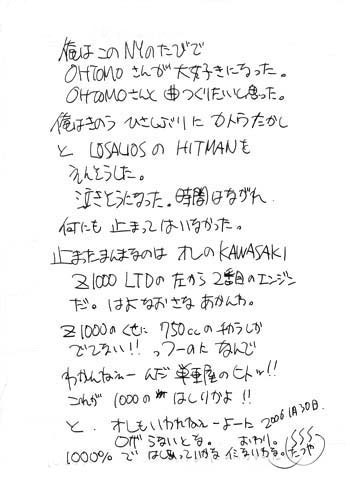 俺はこのNYのたびで
OHTOMOさんが大好きになった。
OHTOMOさんと曲つくりたいと思った。
俺はきのう ひさしぶりに カトウたかし
と LOSALIOSの HITMANも
えんそうした。
泣きそうになった。時間はながれ
何にも止まってはいなかった。
止まったまんまなのは オレのKAWASAKI
Z1000 LTDの 左から 2番目のエンジン
だ。はよ なおさな あかんわ。
Z1000のくせに 750ccの チカラしか
でてない!! っつーのに なんで
わかんねぇーんだ 単車屋のヒトッ!!
これが 1000の はしりかよ!!
と、オレもいわれねぇーよーに
2006 1月30日.
ロがらないとな。 おわり。
1000% で いかな イミないわな。たつや